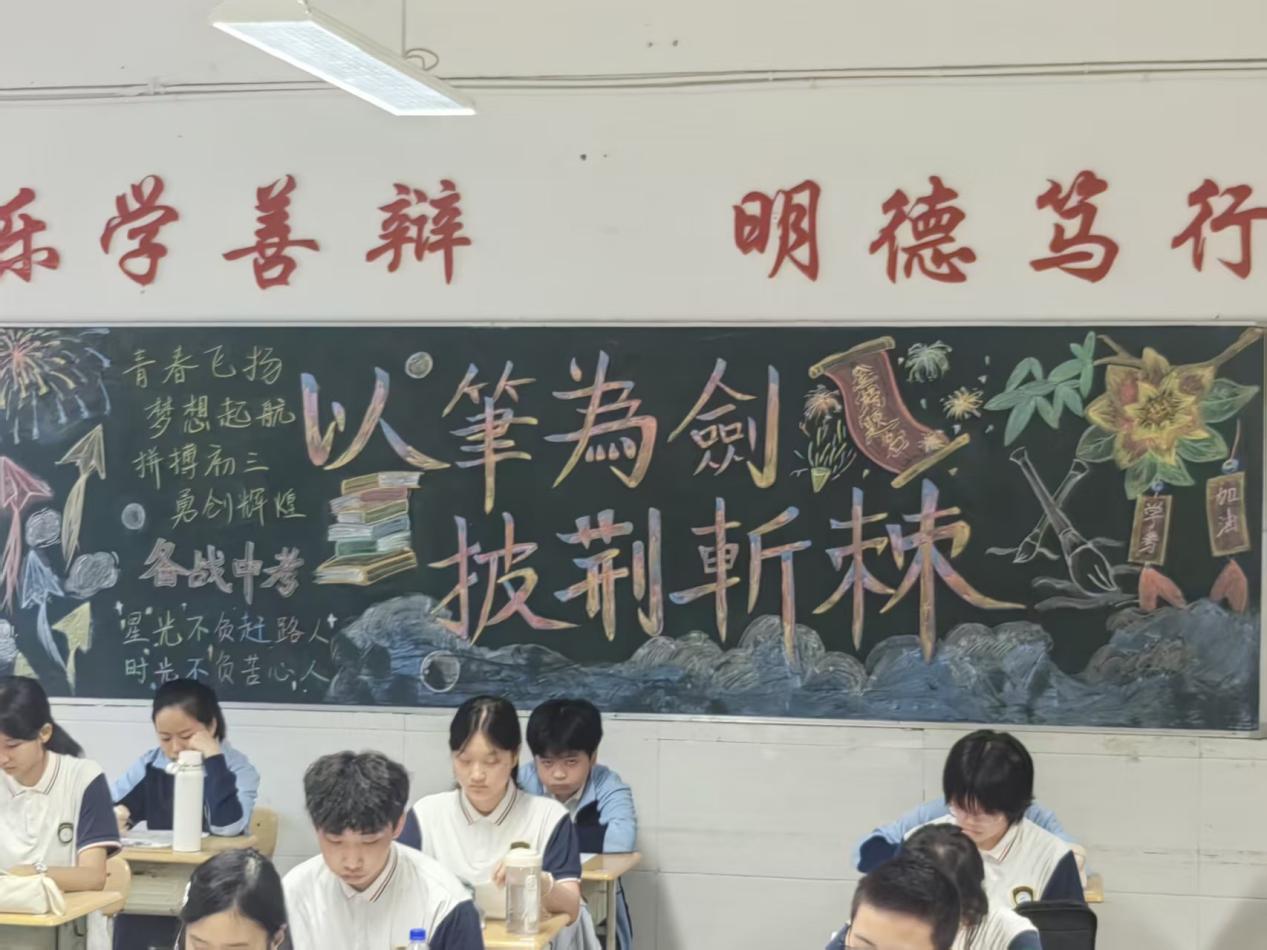 乐学善辩 明德笃行
青春飞扬
梦想起航
拼搏初三
勇创辉煌
备战中考
星光不负赶路人
时光不负苦心人
以筆為劍
披荆斬棘
金榜题名
学考
加油